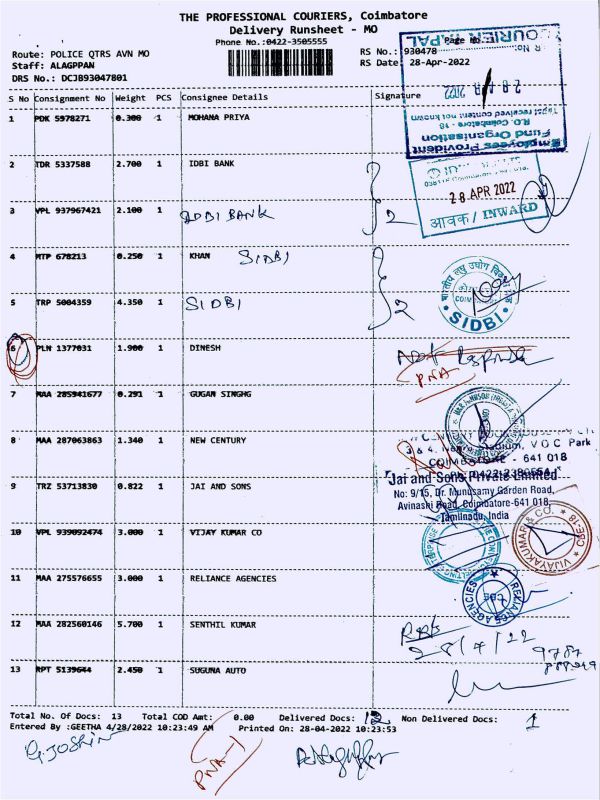 THE PROFESSIONAL COURIERS, Coimbatore
Delivery Runsheet - MO
Phone No.:0422-3505555
Route: POLICE QTRS AVN MO
Staff: ALAGPPAN
DRS No.: DCJB93047801
RS No.: 930478
RS Date: 28-Apr-2022
S No Consignment No Weight PCS Consignee Details Signature
1 PDK 5978271 0.300 1 MOHANA PRIYA
2 TDR 5337588 2.700 1 IDBI BANK
3 VPL 937967421 2.100 1 IDBI BANK
4 MTP 678213 0.250 1 KHAN SIDBI
5 TRP 5004359 4.350 1 SIDBI
6 PLN 1377031 1.900 1 DINESH
7 MAA 285941677 0.291 1 GUGAN SINGHG
8 MAA 287063863 1.340 1 NEW CENTURY
9 TRZ 53713830 0.822 1 JAI AND SONS
10 VPL 939092474 3.000 1 VIJAY KUMAR CO
11 MAA 275576655 3.000 1 RELIANCE AGENCIES
12 MAA 282560146 5.700 1 SENTHIL KUMAR
13 RPT 5139644 2.450 1 SUGUNA AUTO
COURIER TAPAL
R No:
28 APR 2022
Tapal received content not known
R.O. Coimbatore - 18
Fund Organisation
Employees Provident
28 APR 2022
आवक/ INWARD
2
भारतीय लघु उद्योग विकास
SIDBI
2
PNA
3 & 4, Nehru Stadium, V O C Park
COIMBATORE - 641 018
Jai and Sons Private Limited
No: 9/15, Dr. Munusamy Garden Road,
Avinashi Road, Coimbatore-641 018,
Tamilnadu, India
VIJAYAKUMAR & CO.
CBE-18
RELIANCE AGENCIES
CBE
28/4/22
9787
Total No. Of Docs: 13 Total COD Amt: 0.00 Delivered Docs: 12 Non Delivered Docs: 1
Entered By :GEETHA 4/28/2022 10:23:49 AM Printed On: 28-04-2022 10:23:53
G.JOSHIN
PNA-1